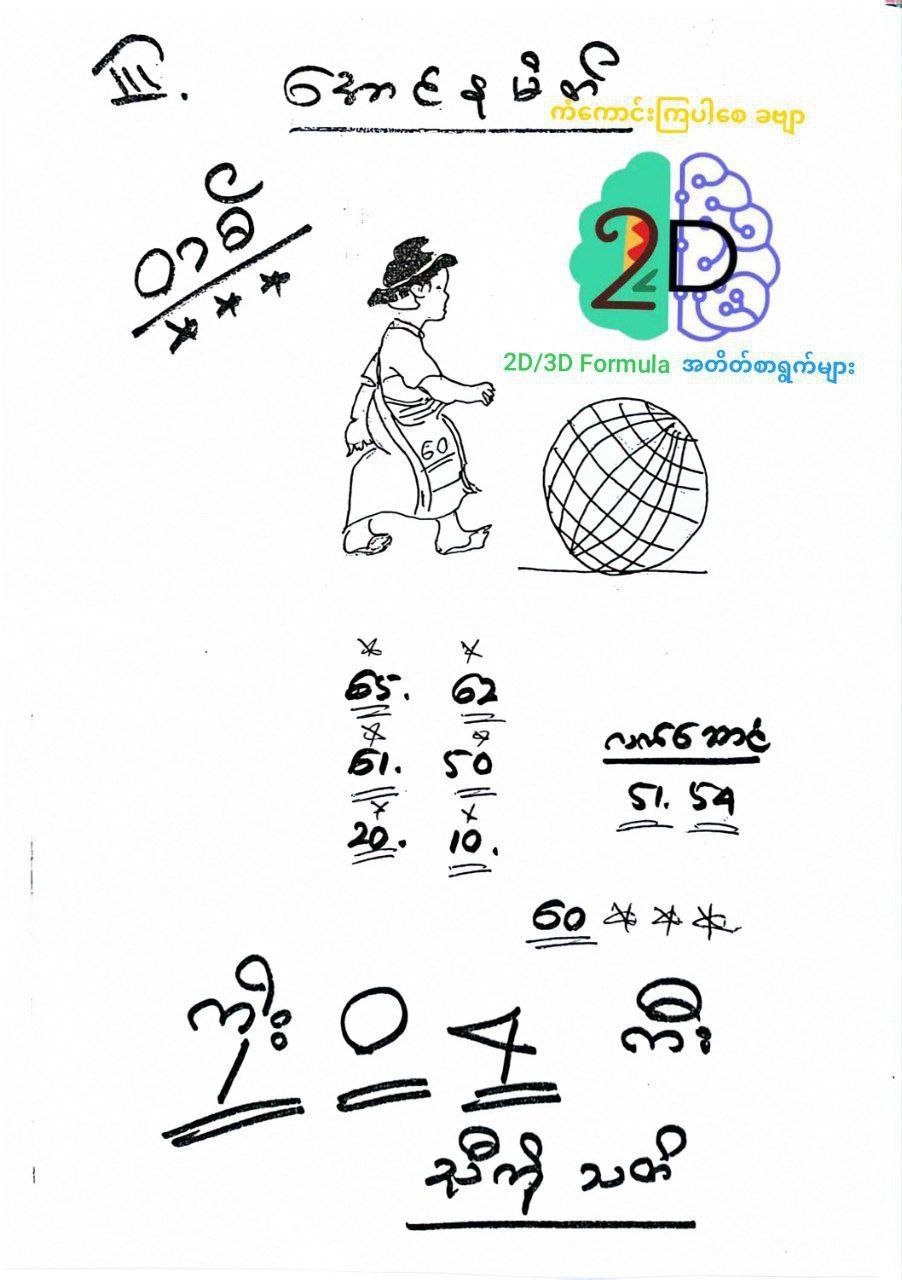 III. အောင်နမိတ်
ကံကောင်းကြပါစေ ခဗျာ
2D
2D/3D Formula အတိတ်စာရွက်များ
60
65. 62
61. 50
20. 10.
လက်အောင်
51. 54
60
0 4
သီကို သတ်